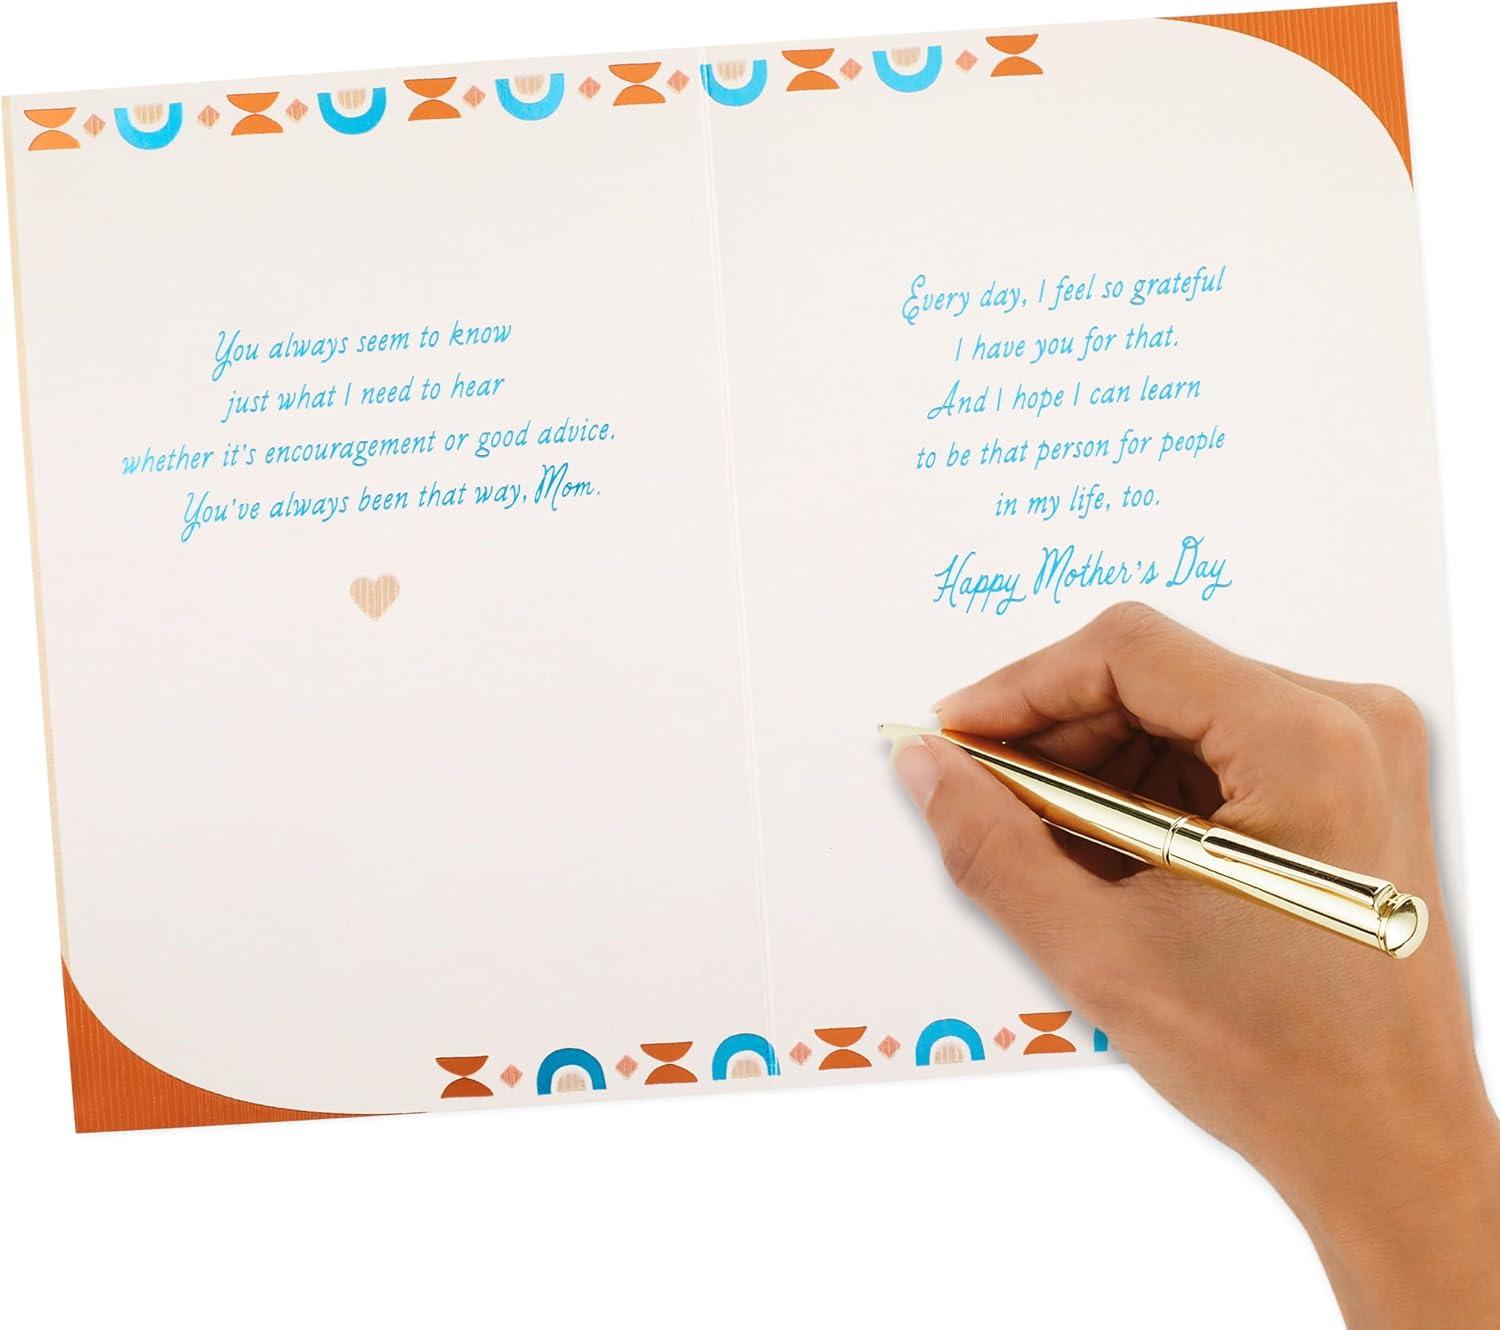 You always seem to know
just what I need to hear
whether it's encouragement or good advice.
You've always been that way, Mom.
Every day, I feel so grateful
I have you for that.
And I hope I can learn
to be that person for people
in my life, too.
Happy Mother's Day